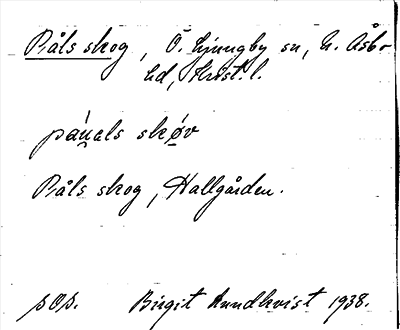 Påls skog, Ö. Ljungby sn, N. Åsbo
hd, Krist. l.
påu̯als skø̱v
Påls skog, Hallgården.
sOs. Birgit Rundkvist 1938.